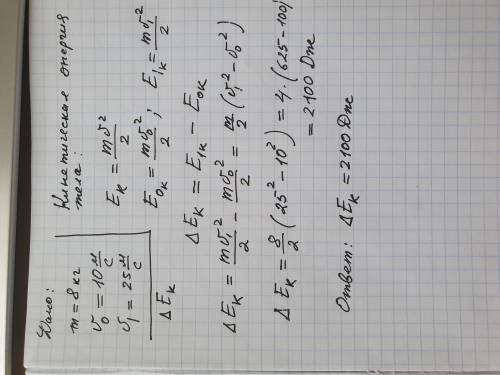 Дано:
m = 8 кг
υ₀ = 10 м/с
υ₁ = 25 м/с
ΔEₖ
Кинетическая энергия
тела:
Eₖ = mυ²/2
E₀ₖ = mυ₀²/2; E₁ₖ = mυ₁²/2
ΔEₖ = E₁ₖ − E₀ₖ
ΔEₖ = mυ₁²/2 − mυ₀²/2 = m/2 (υ₁² − υ₀²)
ΔEₖ = 8/2 (25² − 10²) = 4·(625 − 100)
= 2100 Дж
Ответ: ΔEₖ = 2100 Дж